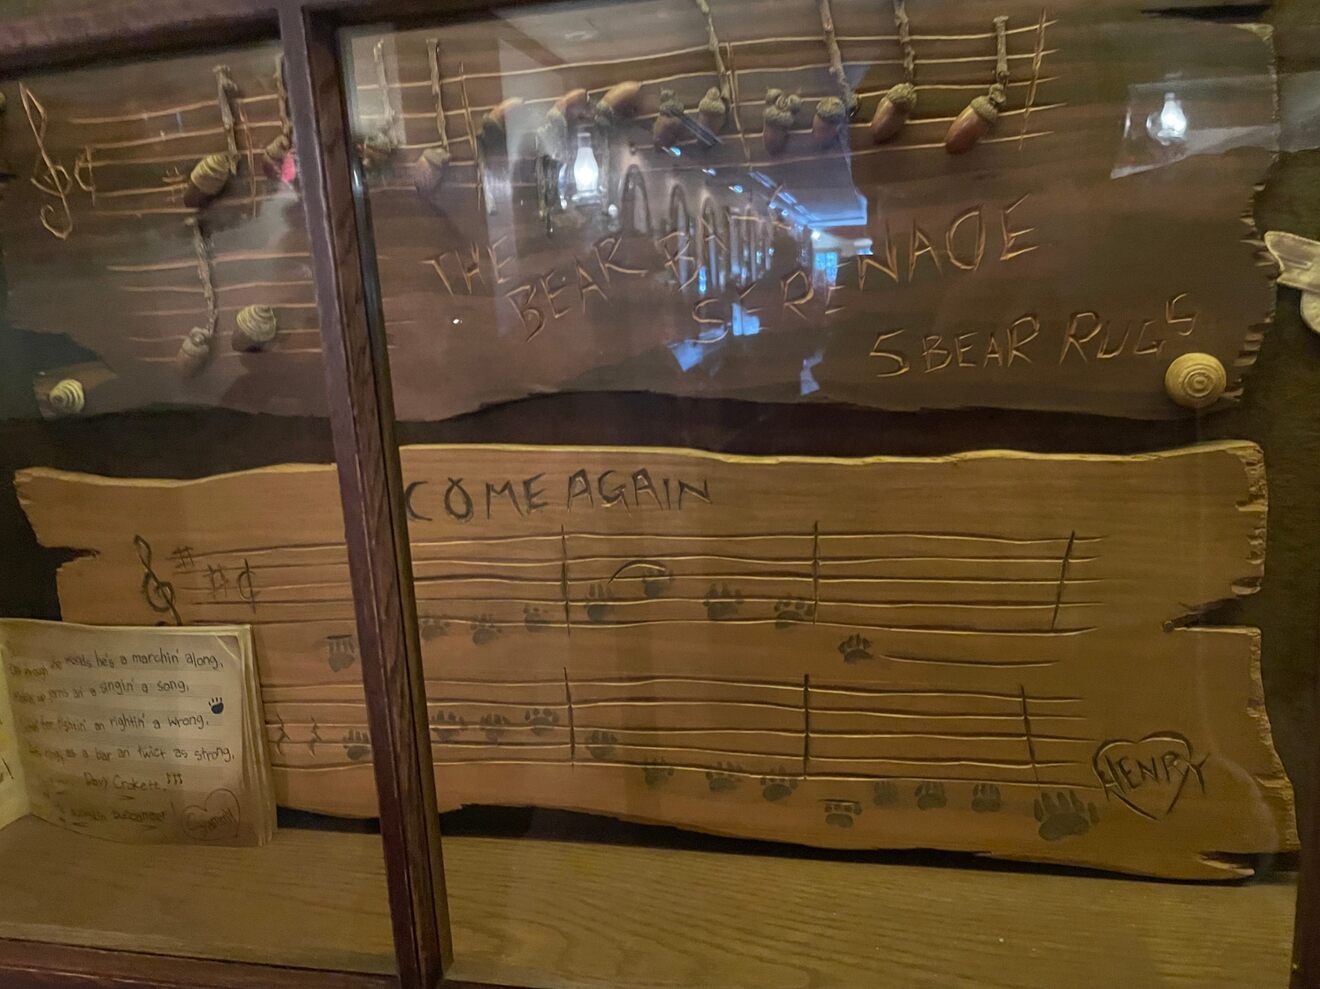 THE
BEAR BAND
SERENADE
5 BEAR RUGS
COME AGAIN
he's a marchin' along,
a singin' a song,
fightin' an rightin' a wrong,
as a bar an twict as strong,
Davy Crokett
HENRY